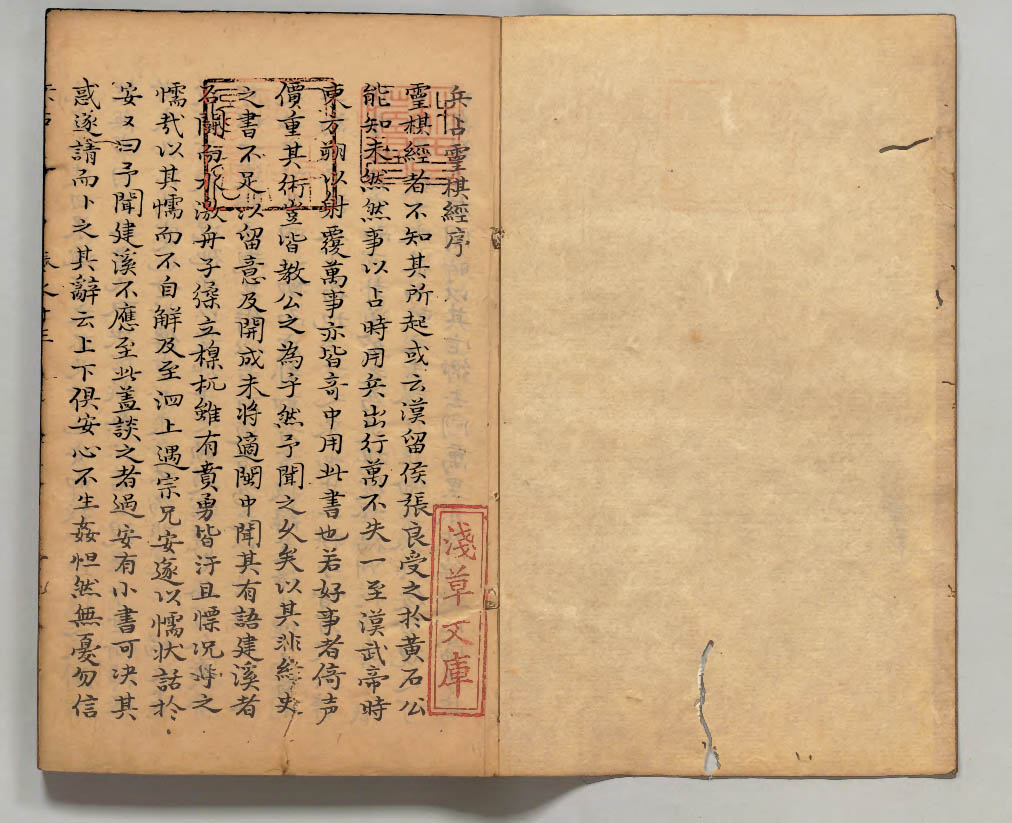 兵占靈棋經序
靈棋經者不知其所起或云漢留侯張良受之於黃石公
能知未然然事以占時用兵出行萬不失一至漢武帝時
東方朔以射覆萬事亦皆奇中用此書也若好事者倚声
價重其術豈皆教公之為乎然予聞之久矣以其非経史
之書不足以留意及開成末將適閩中聞其有語建溪者
石閗而水激舟子操立檝杌雖有賁勇皆汗且慄况

之
懦哉以其懦而不自解及至泗上遇宗兄安遂以懦狀話於
安又曰予聞建溪不應至此盖談之者過安有小書可决其
惑遂請而卜之其辭云上下俱安心不生姦怛然無憂勿信
淺草文庫